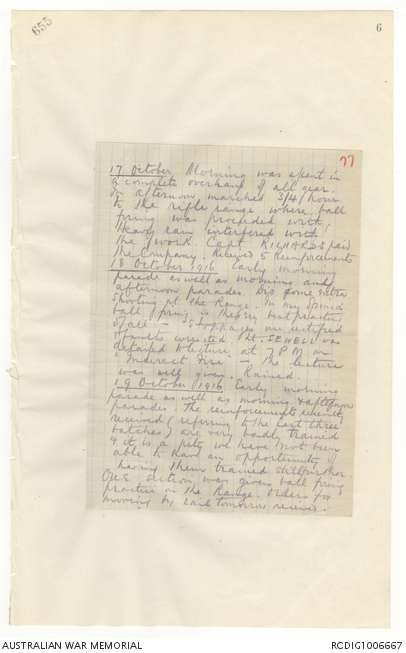 655
6
77
17 October Morning was spent in
a complete overhaul of all gear.
In afternoon marched 3/4 hour
to the rifle range where ball
firing was proceeded with,
Heavy rain interfered with
the work. Capt RICHARDS paid
the Company. Received 5 Reinforcements
18 October 1916 Early morning
parade as well as morning and
afternoon parades. Did some extra
shooting at the Range. In my opinion
ball firing is the very best practice
of all - Stoppages are rectified
& faults corrected. Lt. SEWELL was
detailed to lecture at 7 P M on
"Indirect Fire - the lecture
was well given. Rained.
19 October 1916 Early morning
parade as well as morning & afternoon
parades. The reinforcements recently
received (referring to the last three
batches) are very badly trained
& it is a pity we have not been
able to have an opportunity of
having them trained
One section was given ball firing
practice on the Range. Orders for
moving by rail tomorrow received.
AUSTRALIAN WAR MEMORIAL
RCDIG1006667